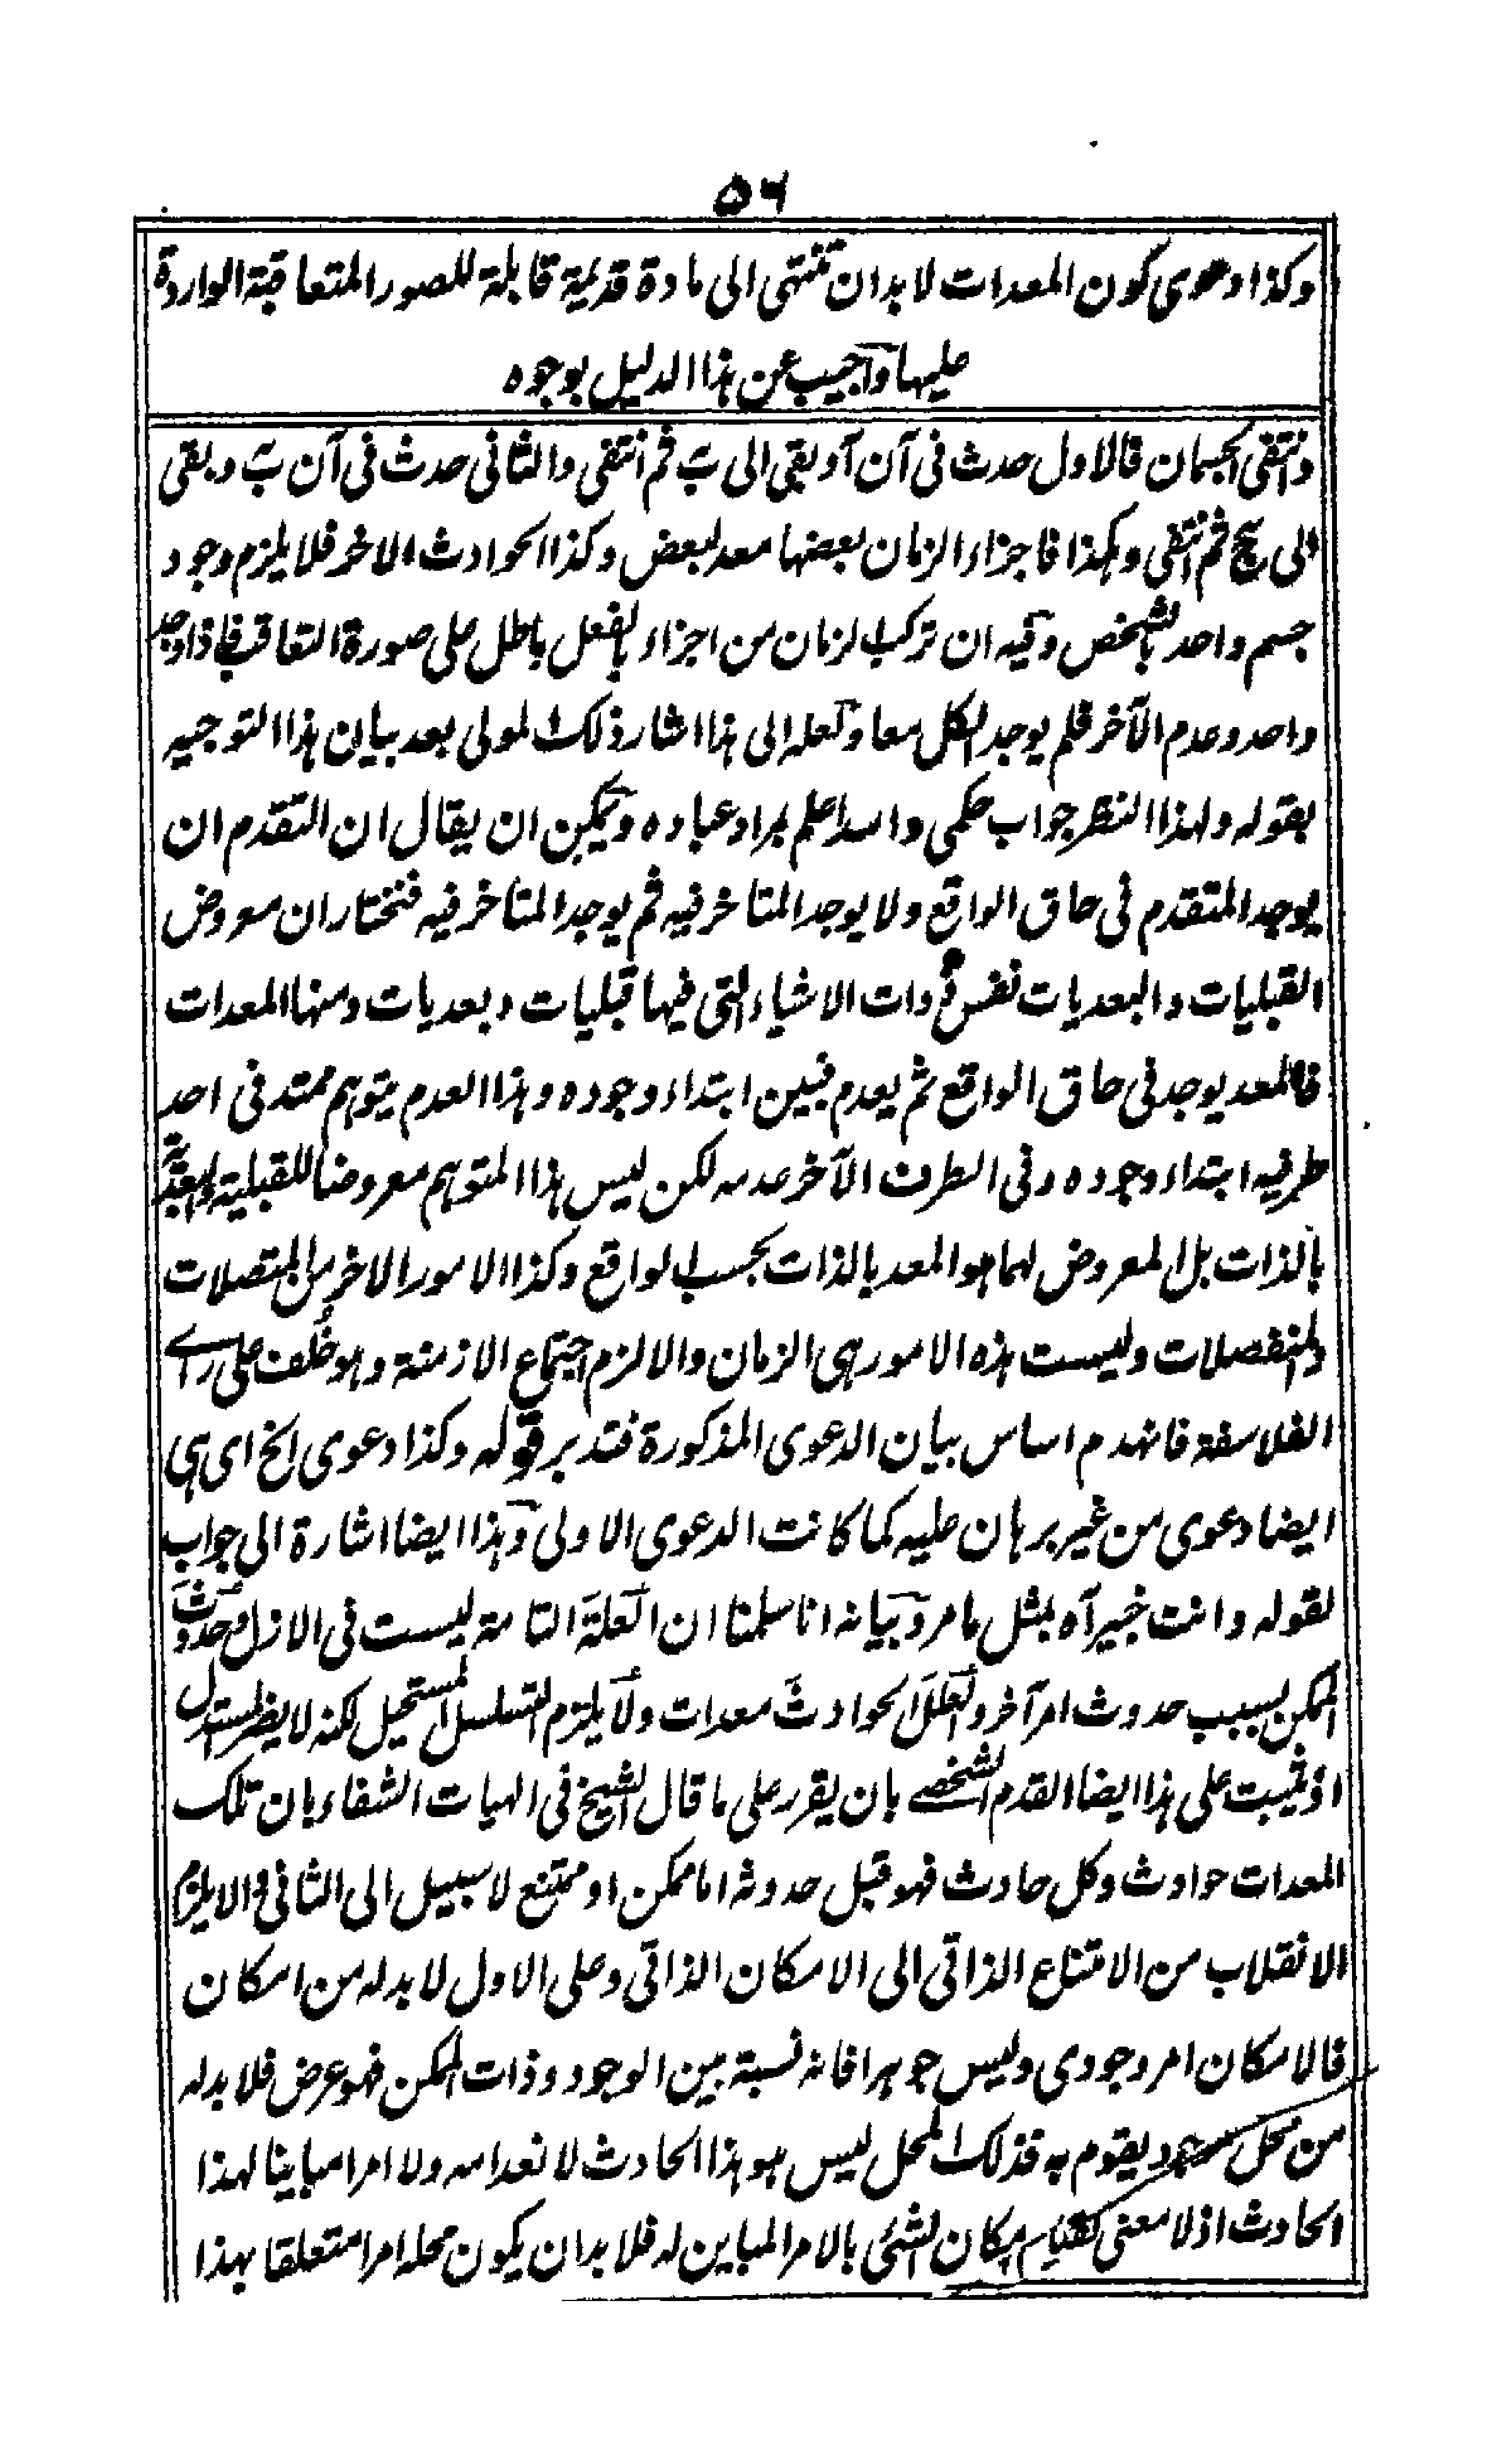 ٥٦
وكذا دعوى كون المعدات لا بد ان تنتهى الى مادة قديمة قابلة للصور المتعاقبة الواردة
عليها وآجيب عن هذا الدليل بوجوه
وانتفى الجسمان فالاول حدث فى آن آ وبقى الى ب ثم انتفى والثانى حدث فى آن ب وبقى
الى ج ثم انتفى وهكذا فاجزاء الزمان بعضها معد لبعض وكذا الحوادث الاخر فلا يلزم وجود
جسم واحد بالشخص وفيه ان تركب الزمان من اجزاء بالفعل باطل على صورة التعاقب فاذا وجد
واحد وعدم الآخر فلم يوجد الكل معا ولعله الى هذا اشار ذلك المولى بعد بيان هذا التوجيه
بقوله ولهذا النظر جواب حكمى والله اعلم بمراد عباده ويمكن ان يقال ان التقدم ان
يوجد المتقدم فى حاق الواقع ولا يوجد المتاخر فيه ثم يوجد المتأخر فيه فنختار ان معروض
القبليات والبعديات نفس ذوات الاشياء التى فيها قبليات وبعديات ومنها المعدات
فالمعد يوجد فى حاق الواقع ثم يعدم فبين ابتداء وجوده وهذا العدم يتوهم ممتد فى احد
طرفيه ابتداء وجوده وفى الطرف الآخر عدمه لكن ليس هذا المتوهم معروضا للقبلية والبعدية
بالذات بل المعروض لهما هو المعد بالذات بحسب الواقع وكذا الامور الاخر من المتصلات
والمنفصلات وليست هذه الامور هى الزمان والا لزم اجتماع الازمنة وهو خُلف على راے
الفلاسفة فانهدم اساس بيان الدعوى المذكورة فتدبر قوله وكذا دعوى الخ اى هى
ايضا دعوى من غير برهان عليه كما كانت الدعوى الاولى وهذا ايضا اشارة الى جواب
لقوله وانت خبير آه بمثل ما مر وبيانه انا سلمنا ان العلة التامة ليست فى الازل وحدوث
الممكن بسبب حدوث امر آخر والعلل الحوادث معدات ولا يلزم التسلسل المستحيل لكنه لا يضر المستدل
اذ يثبت على هذا ايضا القدم الشخصے بان يقرر على ما قال الشيخ فى الهيات الشفاء بان تلك
المعدات حوادث وكل حادث فهو قبل حدوثه اما ممكن او ممتنع لا سبيل الى الثانى والا يلزم
الانقلاب من الامتناع الذاتى الى الامكان الذاتى وعلى الاول لا بد له من امكان
فالامكان امر وجودى وليس جوهرا فانه نسبة بين الوجود وذات الممكن فهو عرض فلا بد له
من محل موجود يقوم به فذلك المحل ليس هو هذا الحادث لانعدامه ولا امرا مباينا لهذا
الحادث اذ لا معنى لقيام امكان الشئى بالامر المباين له فلا بد ان يكون محله امرا متعلقا بهذا